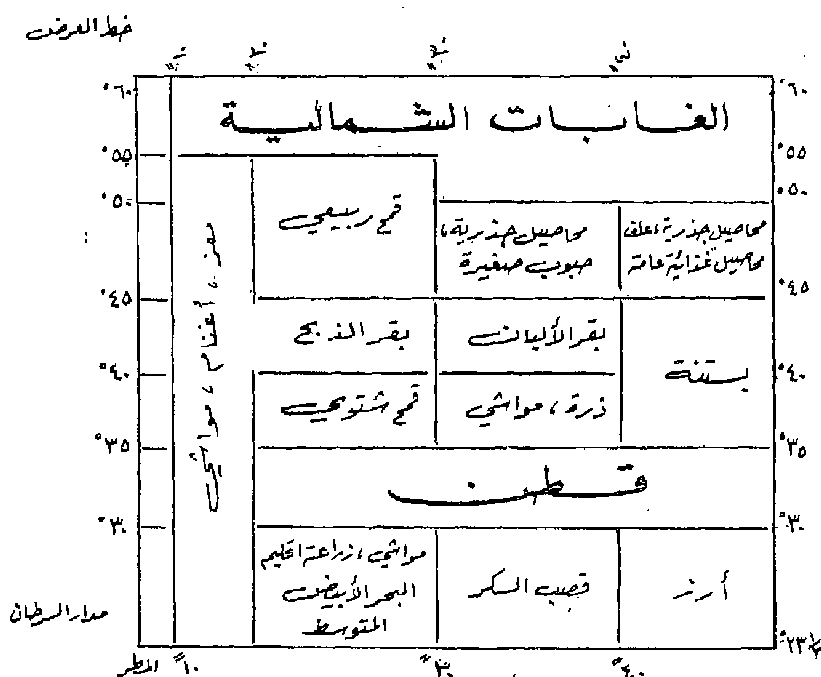 خط العرض
١٠ً ٢٠ً ٣٠ً ٤٠ً
٦٠° ٦٠°
الغابات الشمالية
٥٥° ٥٥°
٥٠° ٥٠°
قمح ربيعي
محاصيل جذرية،
حبوب صغيرة
محاصيل جذرية، علف
محاصيل غذائية عامة
٤٥° ٤٥°
معز، أغنام، مواشي
بقر الذبح
بقر الألبان
بستنة
٤٠° ٤٠°
قمح شتوي
ذرة، مواشي
٣٥° ٣٥°
قطن
٣٠° ٣٠°
مواشي، زراعة اقليم
البحر الأبيض
المتوسط
قصب السكر
أرز
مدار السرطان
٢٣½°
المطر
١٠ً ٣٠ً ٤٠ً